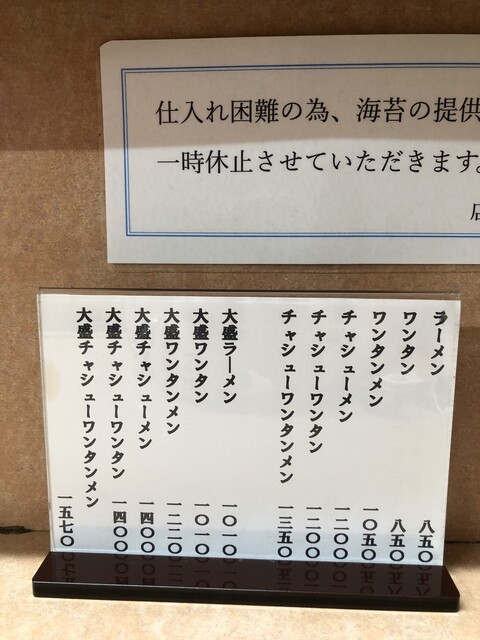 仕入れ困難の為、海苔の提供
一時休止させていただきます。
店
ラーメン 八五〇
ワンタン 八五〇
ワンタンメン 一〇五〇
チャシューメン 一二〇〇
チャシューワンタン 一二〇〇
チャシューワンタンメン 一三五〇
大盛ラーメン 一〇一〇
大盛ワンタン 一〇一〇
大盛ワンタンメン 一二二〇
大盛チャシューメン 一四〇〇
大盛チャシューワンタン 一四〇〇
大盛チャシューワンタンメン 一五七〇